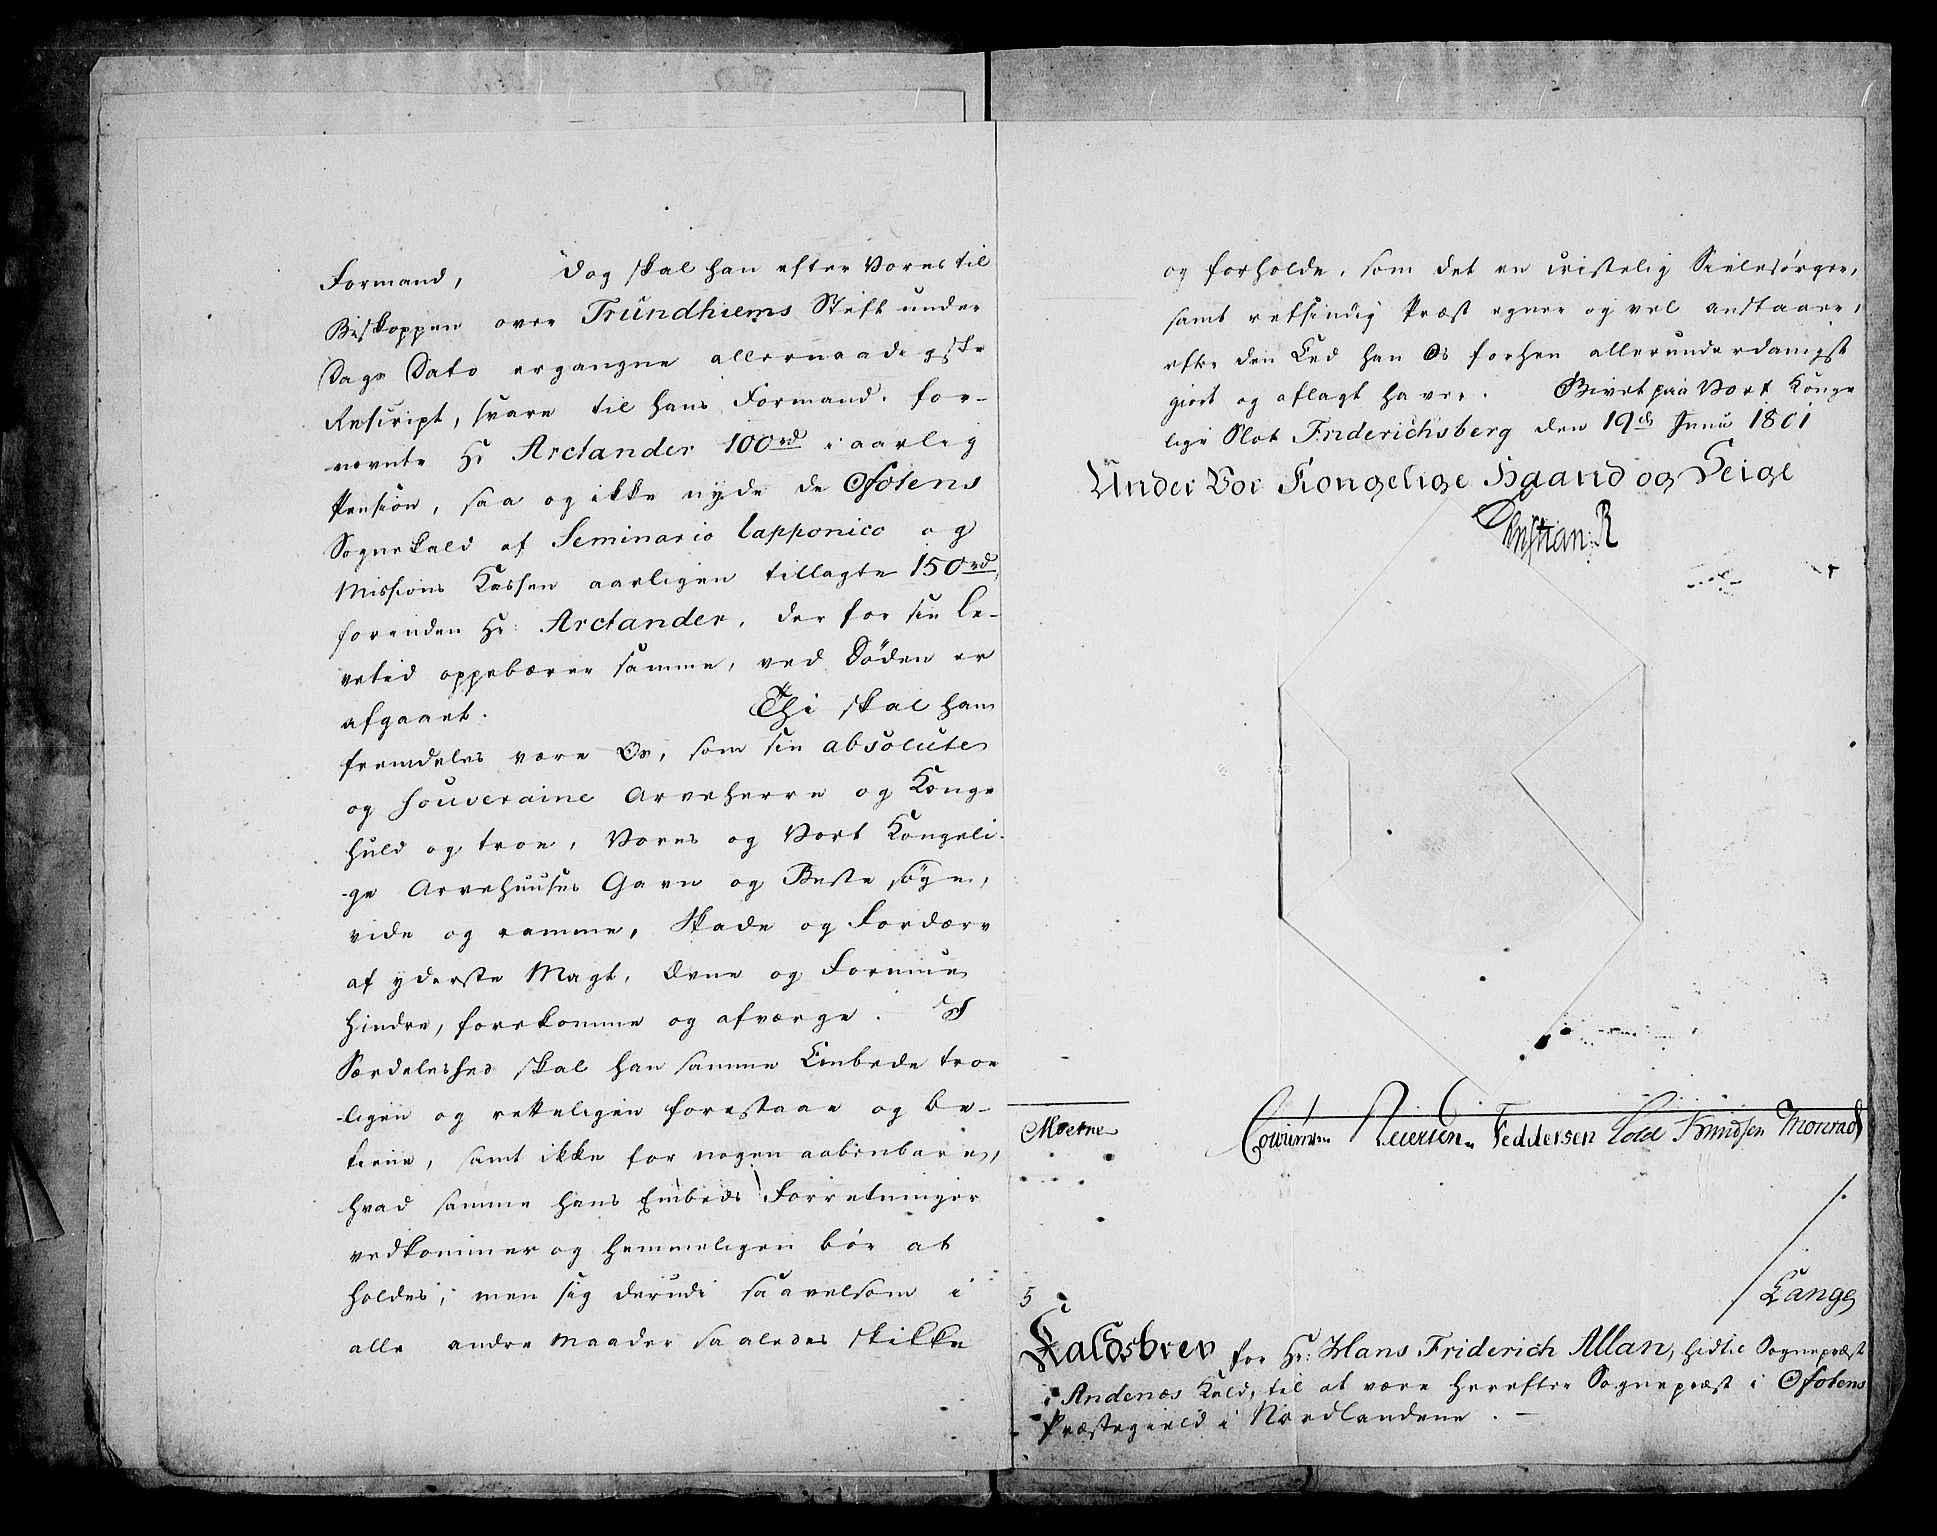 Formand, Dog skal han efter Vores til
Biskoppen over Trundhiems Stift under
Dags Dato ergangne allernaadigste
Rescript, svare til hans Formand, for-
nevnte Hr Arctander 100 rd i aarlig
Pension, saa og ikke nyde de Ofotens
Sognekald af Seminario lapponico og
Missions Kassen aarligen tillagte 150 rd,
forenden Hr: Arctander, der for sin Le-
vetid oppebærer samme, ved Døden er
afgaaet. Thi skal han
fremdeles være Os, som sin absolute
og souveraine Arveherre og Konge
huld og troe, Vores og Vort Kongeli-
-ge Arvehuuses Gavn og Beste søge,
vide og ramme, Skade og Fordærv
af yderste Magt, Evne og Formue
hindre, forekomme og afværge. I
Særdeleshed skal han samme Embede troe
-ligen og retteligen forestaae og be-
tiene, samt ikke for nogen aabenbare,
hvad samme hans Embeds Forretninger
vedkommer og hemmeligen bør at
holdes; men sig derudi saavelsom i
alle andre Maader saaledes skikke
og forholde, som det en cristelig Sielesørger,
samt retsindig Præst egner og vel anstaaer,
efter den Eed han Os forhen allerunderdanigst
giort og aflagt haver. Givet paa Vort Konge
lige Slot Friderichsberg den 19de Junii 1801
Under Vor Kongelige Haand og Seigl
Christian R
Moltke
Reiersen Feddersen Cold Knudsen Monrad
Lange
5
Kaldsbrev for Hr: Hans Friderich Allan, hidtil Sognepræst
i Andenæs Kald, til at være herefter Sognepræst i Ofotens
Præstegield i Nordlandene. -